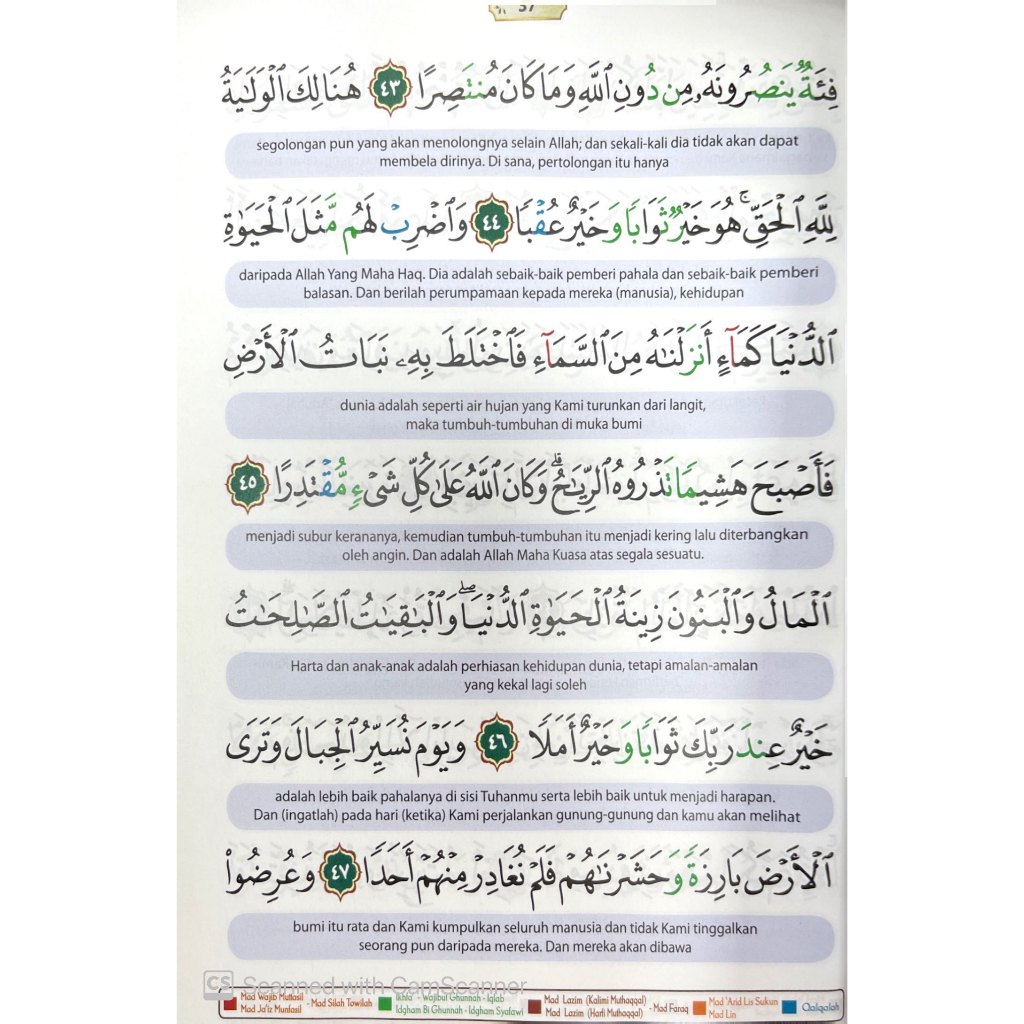 37
فِئَةٌ يَنصُرُونَهُۥ مِن دُونِ ٱللَّهِ وَمَا كَانَ مُنتَصِرًا ٤٣ هُنَالِكَ ٱلْوَلَـٰيَةُ
segolongan pun yang akan menolongnya selain Allah; dan sekali-kali dia tidak akan dapat
membela dirinya. Di sana, pertolongan itu hanya
لِلَّهِ ٱلْحَقِّ ۚ هُوَ خَيْرٌ ثَوَابًا وَخَيْرٌ عُقْبًا ٤٤ وَٱضْرِبْ لَهُم مَّثَلَ ٱلْحَيَوٰةِ
daripada Allah Yang Maha Haq. Dia adalah sebaik-baik pemberi pahala dan sebaik-baik pemberi
balasan. Dan berilah perumpamaan kepada mereka (manusia), kehidupan
ٱلدُّنْيَا كَمَآءٍ أَنزَلْنَـٰهُ مِنَ ٱلسَّمَآءِ فَٱخْتَلَطَ بِهِۦ نَبَاتُ ٱلْأَرْضِ
dunia adalah seperti air hujan yang Kami turunkan dari langit,
maka tumbuh-tumbuhan di muka bumi
فَأَصْبَحَ هَشِيمًا تَذْرُوهُ ٱلرِّيَـٰحُ ۗ وَكَانَ ٱللَّهُ عَلَىٰ كُلِّ شَىْءٍ مُّقْتَدِرًا ٤٥
menjadi subur kerananya, kemudian tumbuh-tumbuhan itu menjadi kering lalu diterbangkan
oleh angin. Dan adalah Allah Maha Kuasa atas segala sesuatu.
ٱلْمَالُ وَٱلْبَنُونَ زِينَةُ ٱلْحَيَوٰةِ ٱلدُّنْيَا ۖ وَٱلْبَـٰقِيَـٰتُ ٱلصَّـٰلِحَـٰتُ
Harta dan anak-anak adalah perhiasan kehidupan dunia, tetapi amalan-amalan
yang kekal lagi soleh
خَيْرٌ عِندَ رَبِّكَ ثَوَابًا وَخَيْرٌ أَمَلًا ٤٦ وَيَوْمَ نُسَيِّرُ ٱلْجِبَالَ وَتَرَى
adalah lebih baik pahalanya di sisi Tuhanmu serta lebih baik untuk menjadi harapan.
Dan (ingatlah) pada hari (ketika) Kami perjalankan gunung-gunung dan kamu akan melihat
ٱلْأَرْضَ بَارِزَةً وَحَشَرْنَـٰهُمْ فَلَمْ نُغَادِرْ مِنْهُمْ أَحَدًا ٤٧ وَعُرِضُوا۟
bumi itu rata dan Kami kumpulkan seluruh manusia dan tidak Kami tinggalkan
seorang pun daripada mereka. Dan mereka akan dibawa
CS Scanned with CamScanner
Mad Wajib Muttasil - Mad Silah Towilah Ikhfa' - Wajibul Ghunnah - Iqlab Mad Lazim (Kalimi Muthaqqal) - Mad Faraq Mad 'Arid Lis Sukun Qalqalah
Mad Ja'iz Munfasil Idgham Bi Ghunnah - Idgham Syafawi Mad Lazim (Harfi Muthaqqal) Mad Lin